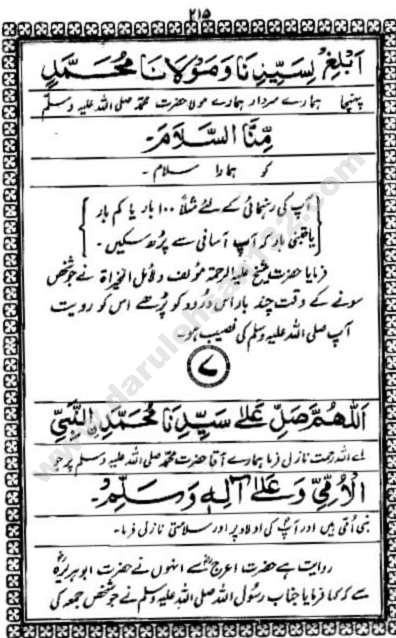 ۲۱۵
اَبْلِغْ لِسَيِّدِنَا وَمَوْلَانَا مُحَمَّدٍ
پہنچا ہمارے سردار ہمارے مولا حضرت محمد صلی اللہ علیہ وسلم
مِنَّا السَّلَامَ۔
کو ہمارا سلام ۔
آپ کی رہنمائی کے لئے مثلاً ۱۰۰ بار یا کم بار
یا جتنی بار کہ آپ آسانی سے پڑھ سکیں۔
فرمایا حضرت شیخ علیہ الرحمۃ مؤلف دلائل الخیراۃ نے جو شخص
سونے کے وقت چند بار اس درود کو پڑھے اس کو رویت
آپ صلی اللہ علیہ وسلم کی نصیب ہو۔
۷
اَللّٰهُمَّ صَلِّ عَلٰے سَيِّدِنَا مُحَمَّدِ النَّبِيِّ
اے اللہ رحمت نازل فرما ہمارے آقا حضرت محمد صلی اللہ علیہ وسلم پر جو
الْاُمِّيِّ وَعَلٰے آلِهٖ وَسَلِّمْ۔
نبی اُمّی ہیں اور آپ کی اولاد پر اور سلامتی نازل فرما۔
روایت ہے حضرت اعرج سے انہوں نے حضرت ابوہریرہ
سے کہ کہا فرمایا جناب رسول اللہ صلی اللہ علیہ وسلم نے جو شخص جمعہ کی